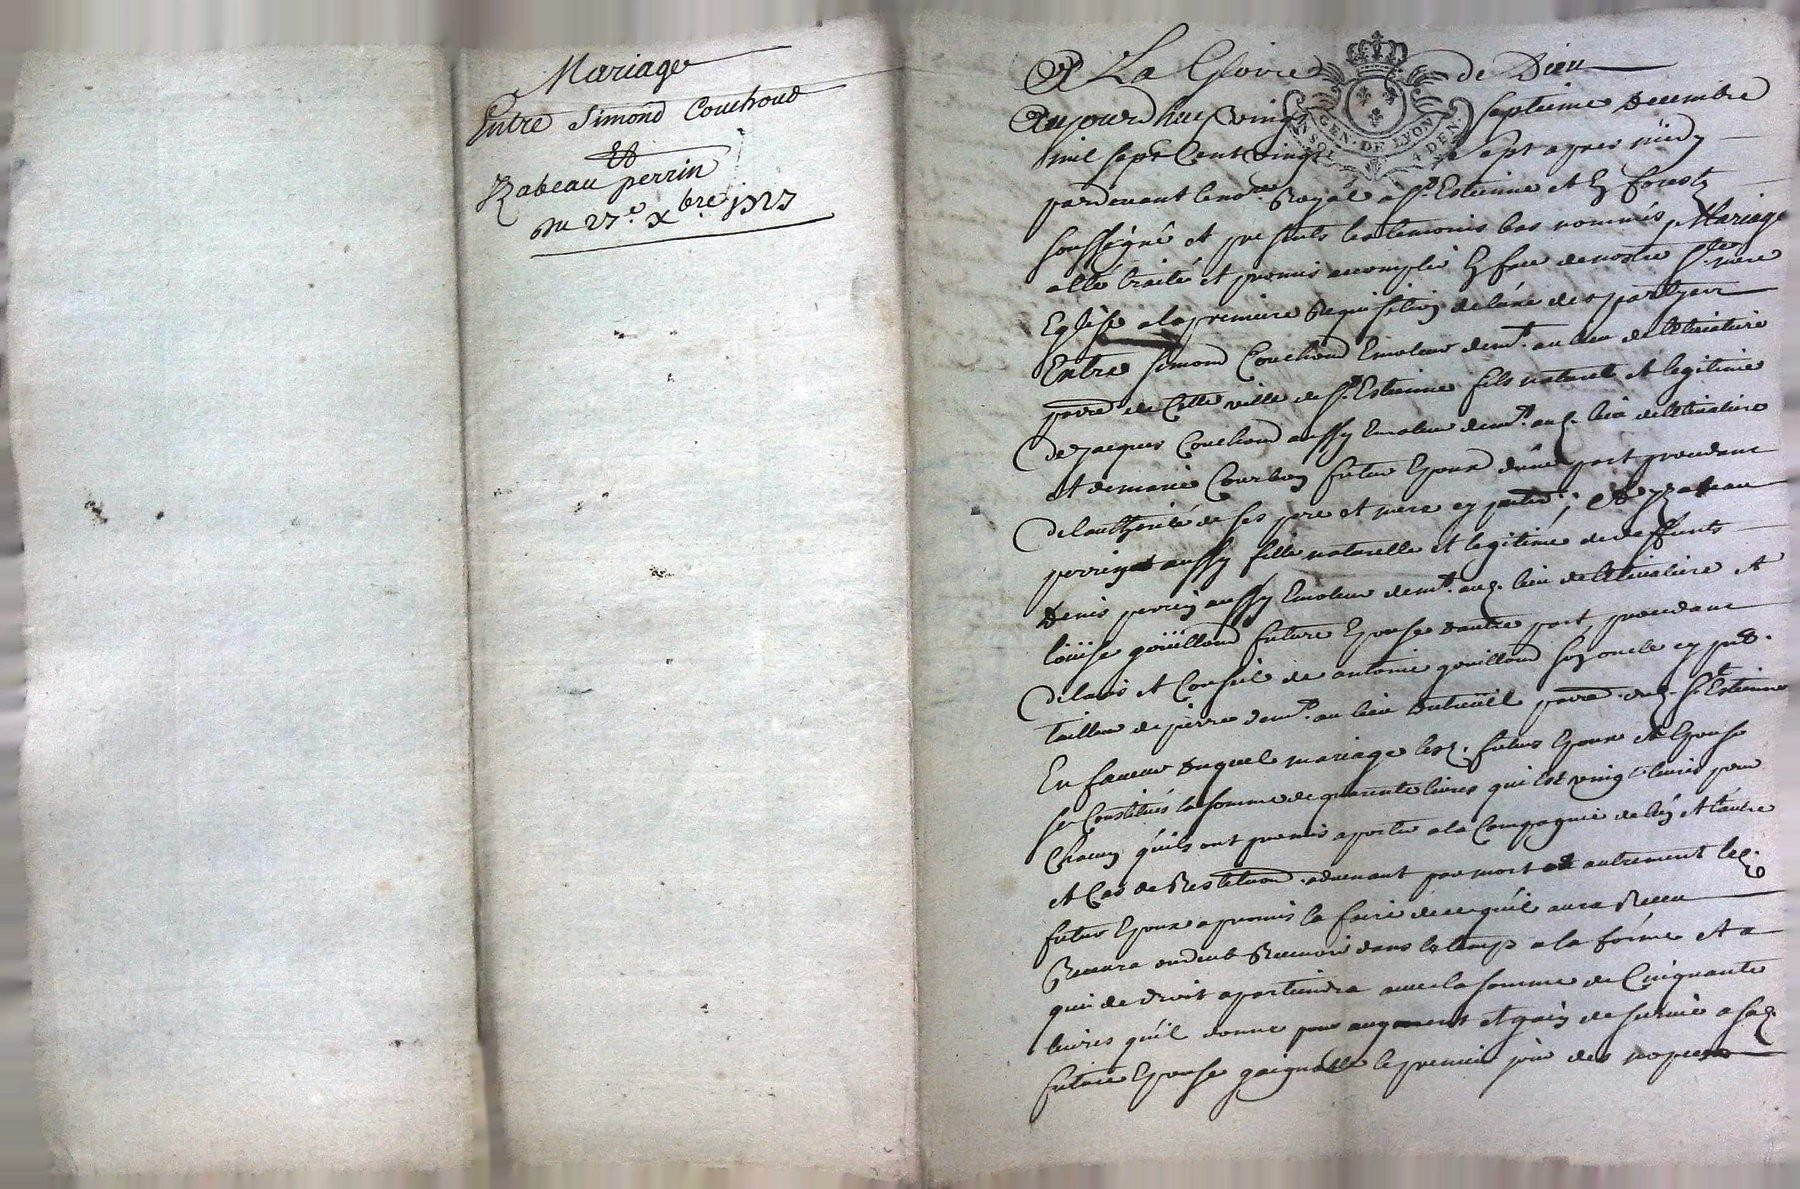 Mariage
Entre Simond Couchoud
Et
Izabeau perrin
du 27.e xbre 1727
A La Gloire de Dieu
GEN. DE LYON
SOL 4 DEN.
Aujourdhuy vingt septieme Decembre
mil sept Cent vingt sept apres midy
pardevant le nore. Royal a St. Estienne et en forestz
soussigné et presents les temoins bas nommés, Mariage
a esté traité et promis accomplir en face de nostre Ste. mere
Eglise a la premiere Requisition de lune des partyes
Entre Simond Couchoud Emoleur demt. au lieu de
parre. de Cette ville de St. Estienne fils naturel et legitime
de jacques Couchoud aussy Emoleur demt. aud. lieu de
et de marie Courbon futur Epoux dune part procedant
de lauthorité de ses pere et mere cy ; Et Izabeau
perrin aussy fille naturelle et legitime de deffunts
Denis perrin aussy Emoleur demt. aud. lieu de Et
loüise goüilloud future Epouse dautre part, procedant
de lavis et Conseil de antoine gouilloud son oncle cy pnt.
tailleur de pierre demt. au lieu parre. dud. St. Estienne
En faveur Duquel mariage lesd. futurs Epoux et Epouse
se Constitués la somme de quarente livres qui est vingt livres pour
Chacun quils ont promis aporter a la Compagnie de lun et lautre
et Cas de Restitution advenant par mort et autrement led.
futur Epoux a promis la faire de ce quil aura Receu
Recevra ou deub Recevoir dans le temps a la forme et a
qui de droit apartiendra avec la somme de Cinquante
livres quil donne pour augment et gain de survie a sad.
future Epouse gaignable le premier jour des nopces